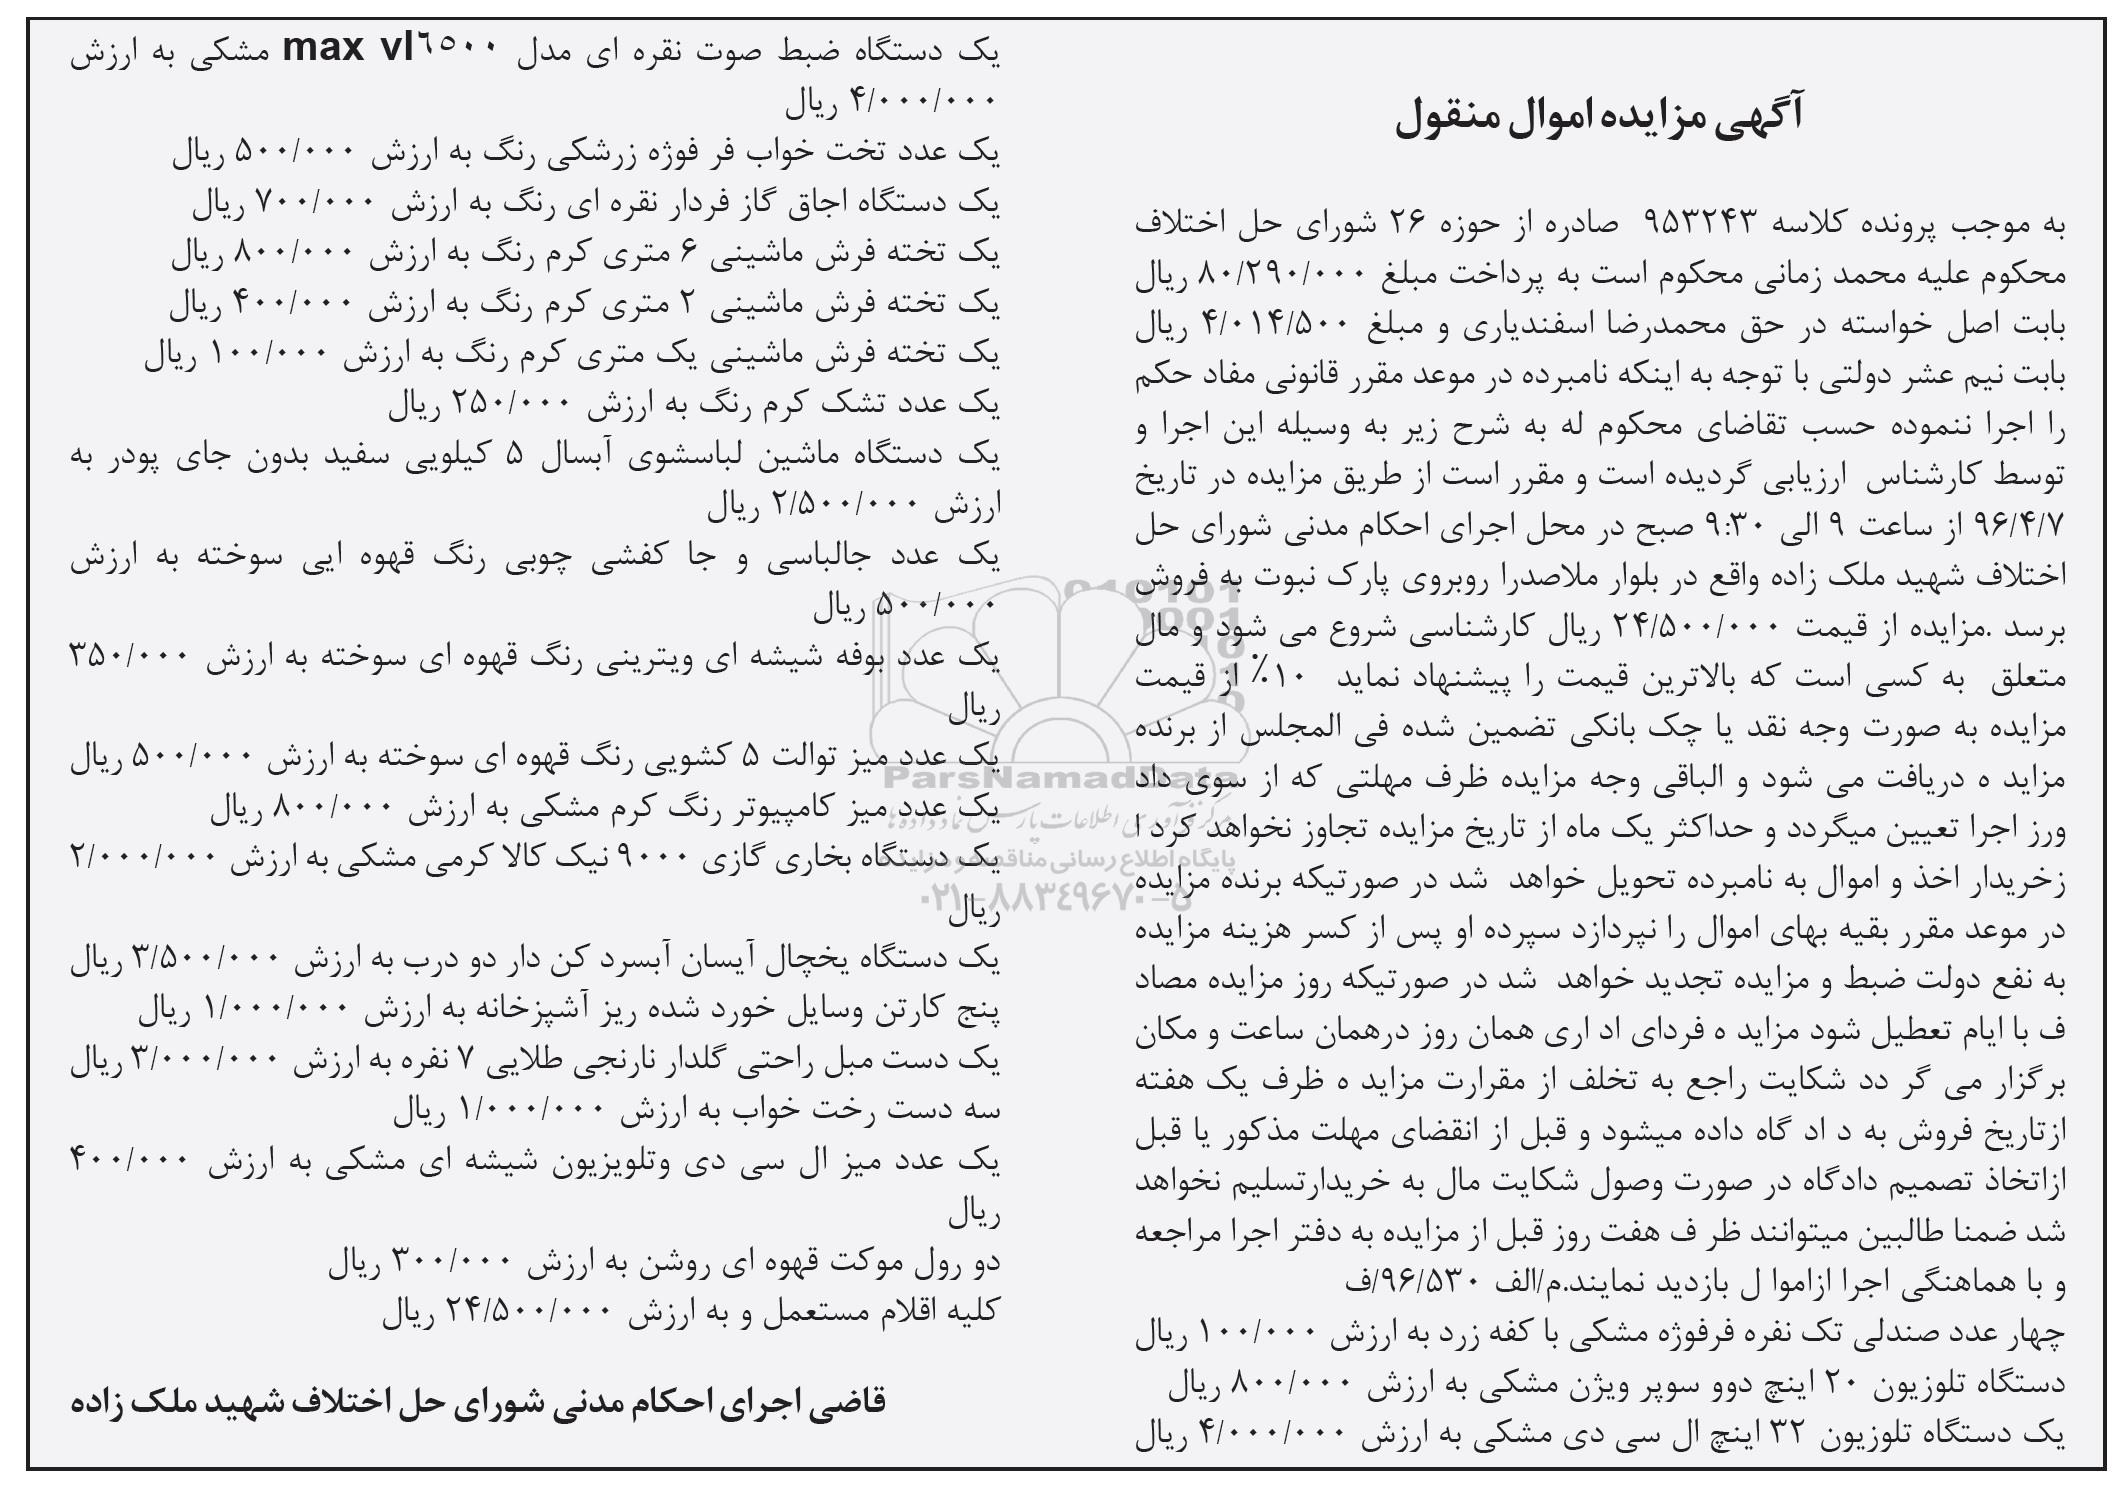 آگهی مزایده اموال منقول
به موجب پرونده کلاسه ۹۵۳۲۴۳ صادره از حوزه ۲۶ شورای حل اختلاف
محکوم علیه محمد زمانی محکوم است به پرداخت مبلغ ۸۰/۲۹۰/۰۰۰ ریال
بابت اصل خواسته در حق محمدرضا اسفندیاری و مبلغ ۴/۰۱۴/۵۰۰ ریال
بابت نیم عشر دولتی با توجه به اینکه نامبرده در موعد مقرر قانونی مفاد حکم
را اجرا ننموده حسب تقاضای محکوم له به شرح زیر به وسیله این اجرا و
توسط کارشناس ارزیابی گردیده است و مقرر است از طریق مزایده در تاریخ
۹۶/۴/۷ از ساعت ۹ الی ۹:۳۰ صبح در محل اجرای احکام مدنی شورای حل
اختلاف شهید ملک زاده واقع در بلوار ملاصدرا روبروی پارک نبوت به فروش
برسد .مزایده از قیمت ۲۴/۵۰۰/۰۰۰ ریال کارشناسی شروع می شود و مال
متعلق به کسی است که بالاترین قیمت را پیشنهاد نماید ۱۰٪ از قیمت
مزایده به صورت وجه نقد یا چک بانکی تضمین شده فی المجلس از برنده
مزاید ه دریافت می شود و الباقی وجه مزایده ظرف مهلتی که از سوی داد
ورز اجرا تعیین میگردد و حداکثر یک ماه از تاریخ مزایده تجاوز نخواهد کرد ا
زخریدار اخذ و اموال به نامبرده تحویل خواهد شد در صورتیکه برنده مزایده
در موعد مقرر بقیه بهای اموال را نپردازد سپرده او پس از کسر هزینه مزایده
به نفع دولت ضبط و مزایده تجدید خواهد شد در صورتیکه روز مزایده مصاد
ف با ایام تعطیل شود مزاید ه فردای اد اری همان روز درهمان ساعت و مکان
برگزار می گر دد شکایت راجع به تخلف از مقرارت مزاید ه ظرف یک هفته
ازتاریخ فروش به د اد گاه داده میشود و قبل از انقضای مهلت مذکور یا قبل
ازاتخاذ تصمیم دادگاه در صورت وصول شکایت مال به خریدارتسلیم نخواهد
شد ضمنا طالبین میتوانند ظر ف هفت روز قبل از مزایده به دفتر اجرا مراجعه
و با هماهنگی اجرا ازاموا ل بازدید نمایند.م/الف ۹۶/۵۳۰/ف
چهار عدد صندلی تک نفره فرفوژه مشکی با کفه زرد به ارزش ۱۰۰/۰۰۰ ریال
دستگاه تلوزیون ۲۰ اینچ دوو سوپر ویژن مشکی به ارزش ۸۰۰/۰۰۰ ریال
یک دستگاه تلوزیون ۳۲ اینچ ال سی دی مشکی به ارزش ۴/۰۰۰/۰۰۰ ریال
یک دستگاه ضبط صوت نقره ای مدل max vl٦٥٠٠ مشکی به ارزش
۴/۰۰۰/۰۰۰ ریال
یک عدد تخت خواب فر فوژه زرشکی رنگ به ارزش ۵۰۰/۰۰۰ ریال
یک دستگاه اجاق گاز فردار نقره ای رنگ به ارزش ۷۰۰/۰۰۰ ریال
یک تخته فرش ماشینی ۶ متری کرم رنگ به ارزش ۸۰۰/۰۰۰ ریال
یک تخته فرش ماشینی ۲ متری کرم رنگ به ارزش ۴۰۰/۰۰۰ ریال
یک تخته فرش ماشینی یک متری کرم رنگ به ارزش ۱۰۰/۰۰۰ ریال
یک عدد تشک کرم رنگ به ارزش ۲۵۰/۰۰۰ ریال
یک دستگاه ماشین لباسشوی آبسال ۵ کیلویی سفید بدون جای پودر به
ارزش ۲/۵۰۰/۰۰۰ ریال
یک عدد جالباسی و جا کفشی چوبی رنگ قهوه ایی سوخته به ارزش
۵۰۰/۰۰۰ ریال
یک عدد بوفه شیشه ای ویترینی رنگ قهوه ای سوخته به ارزش ۳۵۰/۰۰۰
ریال
یک عدد میز توالت ۵ کشویی رنگ قهوه ای سوخته به ارزش ۵۰۰/۰۰۰ ریال
یک عدد میز کامپیوتر رنگ کرم مشکی به ارزش ۸۰۰/۰۰۰ ریال
یک دستگاه بخاری گازی ۹۰۰۰ نیک کالا کرمی مشکی به ارزش ۲/۰۰۰/۰۰۰
ریال
یک دستگاه یخچال آیسان آبسرد کن دار دو درب به ارزش ۳/۵۰۰/۰۰۰ ریال
پنج کارتن وسایل خورد شده ریز آشپزخانه به ارزش ۱/۰۰۰/۰۰۰ ریال
یک دست مبل راحتی گلدار نارنجی طلایی ۷ نفره به ارزش ۳/۰۰۰/۰۰۰ ریال
سه دست رخت خواب به ارزش ۱/۰۰۰/۰۰۰ ریال
یک عدد میز ال سی دی وتلویزیون شیشه ای مشکی به ارزش ۴۰۰/۰۰۰
ریال
دو رول موکت قهوه ای روشن به ارزش ۳۰۰/۰۰۰ ریال
کلیه اقلام مستعمل و به ارزش ۲۴/۵۰۰/۰۰۰ ریال
قاضی اجرای احکام مدنی شورای حل اختلاف شهید ملک زاده
ParsNamadData
مرکز فرآوری اطلاعات پارس نماد داده ها
پایگاه اطلاع رسانی مناقصه و مزایده
۰۲۱-۸۸۳۴۹۶۷۰-۵